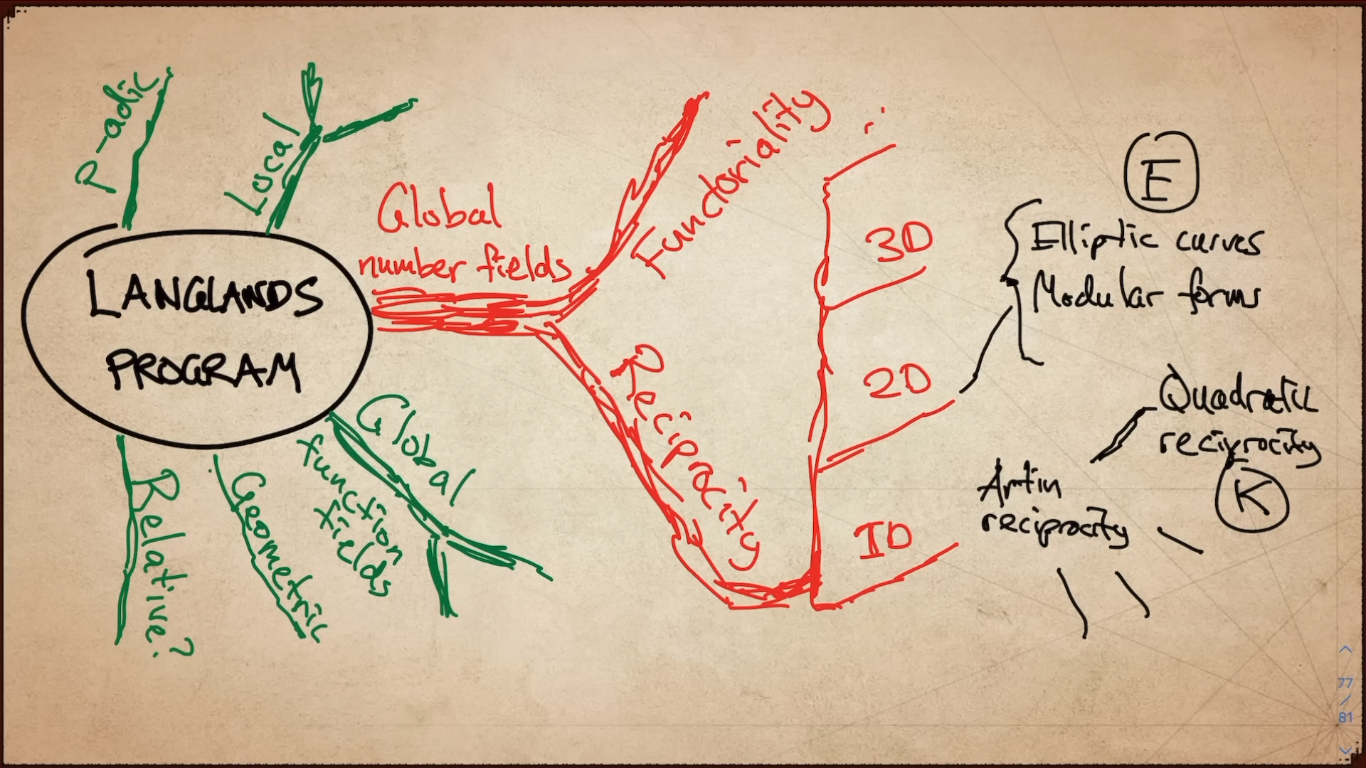 P-adic
Local
LANGLANDS
PROGRAM
Global
number fields
Functoriality
Reciprocity
3D
2D
1D
E
Elliptic curves
Modular forms
Quadratic
reciprocity
K
Artin
reciprocity
Global
function
fields
Geometric
Relative?
77
/
81